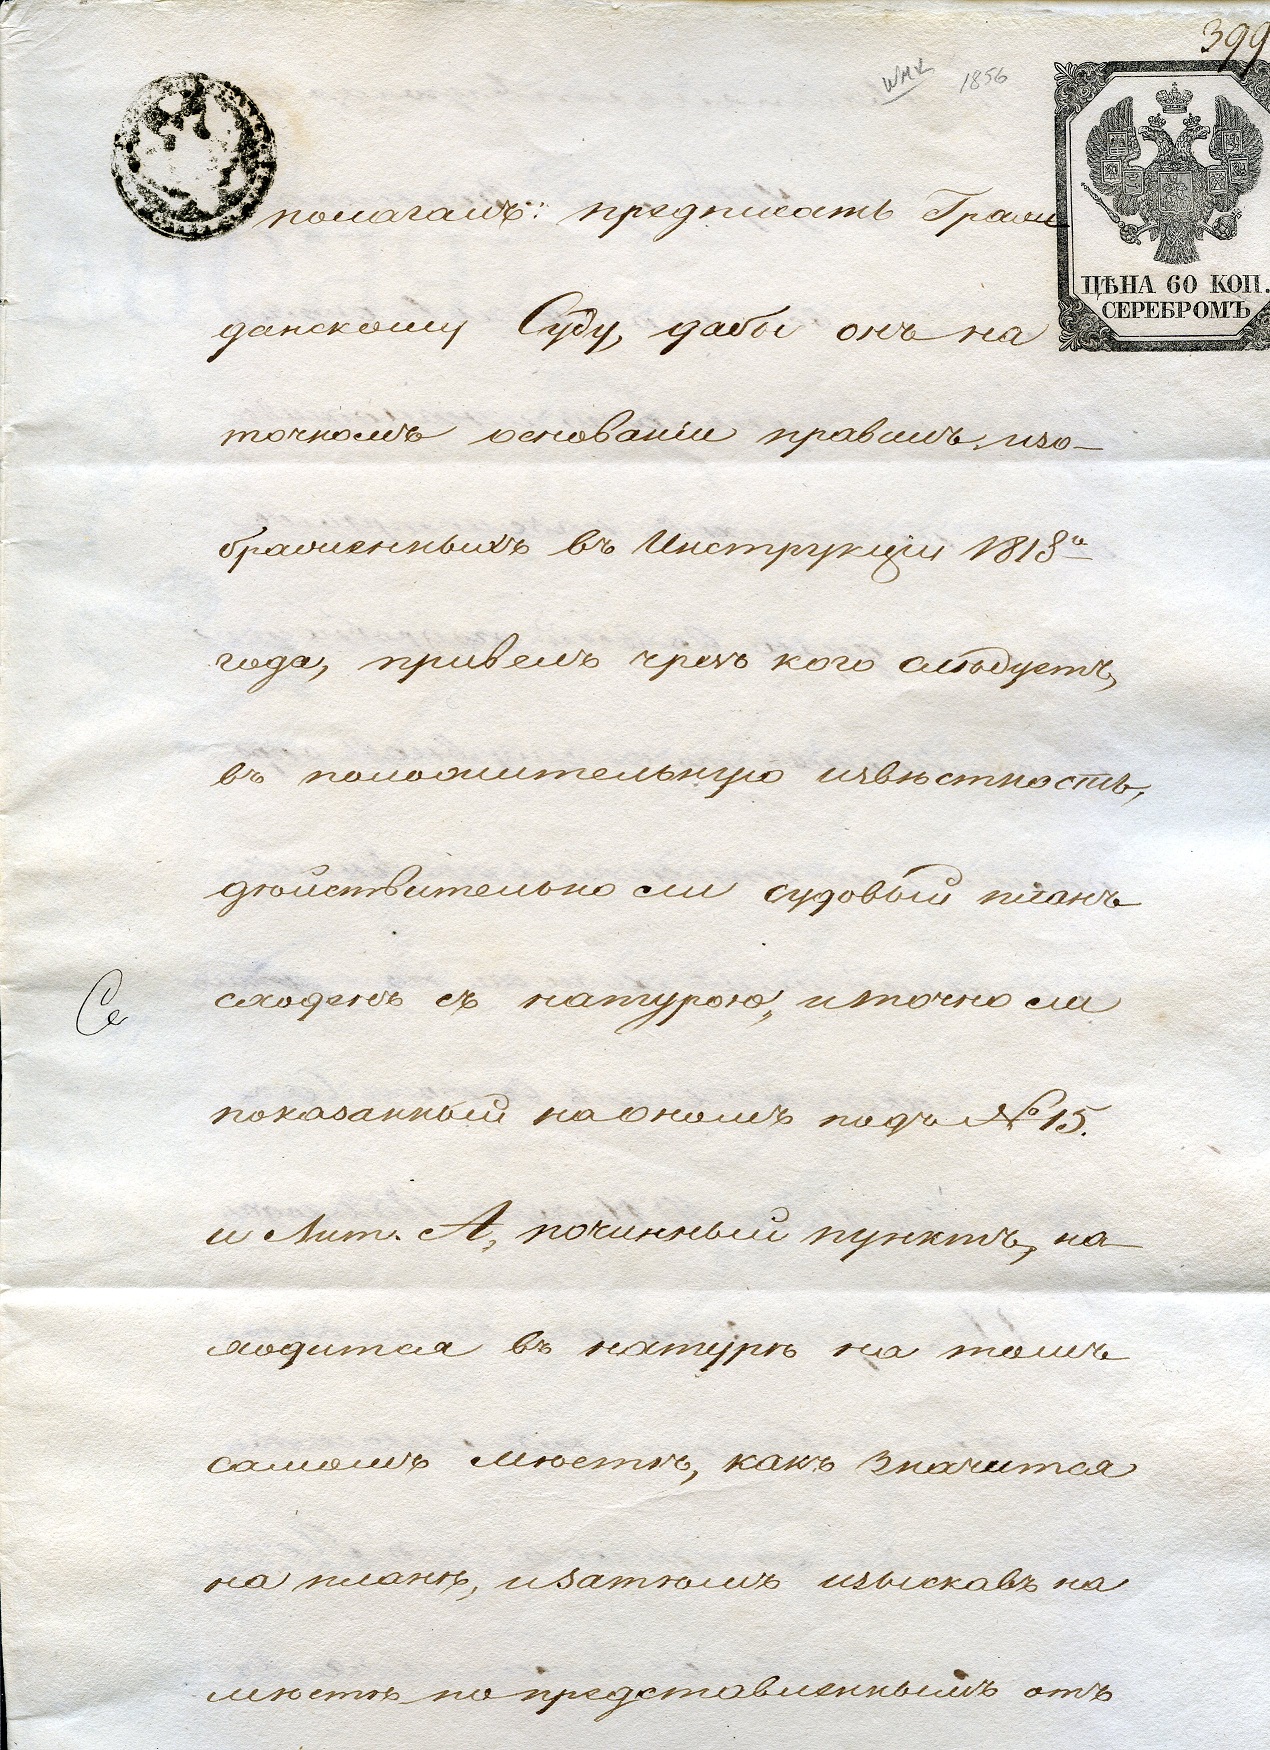 399
WMK 1856
ЦѢНА 60 КОП.
СЕРЕБРОМЪ
полагалъ: предписать Граж
данскому Суду, дабы онъ на
точномъ основаніи правилъ, изо-
браженныхъ въ Инструкціи 1818го
года, привелъ чрезъ кого слѣдуетъ,
въ положительную извѣстность,
дѣйствительно ли судовый планъ
сходенъ съ натурою, и точно ли
показанный на ономъ подъ № 15.
и Лит. А, починный пунктъ, на-
ходится въ натурѣ на томъ
самомъ мѣстѣ, какъ значится
на планѣ, и затѣмъ изыскавъ на
мѣстѣ по представленнымъ отъ